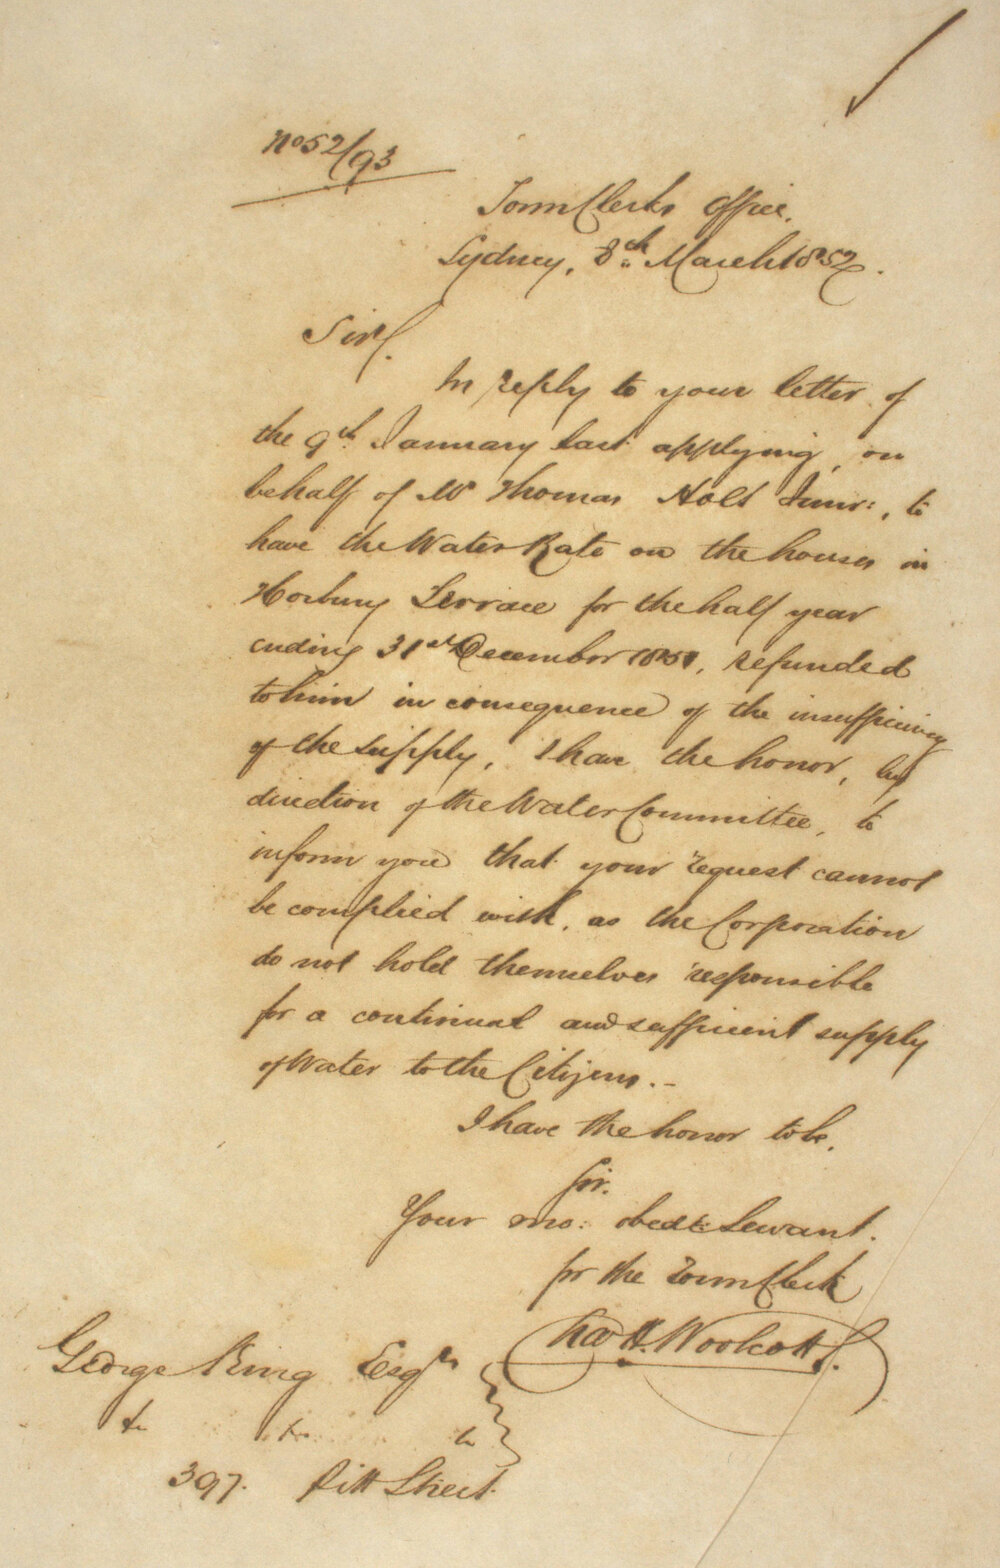 No 52/93
Town Clerks Office.
Sydney, 8th March 1852.
Sir,
In reply to your letter of
the 9th January last applying, on
behalf of Mr Thomas Holt Junr:, to
have the Water Rate on the houses in
Horbury Terrace for the half year
ending 31st December 1851, refunded
to him in consequence of the insufficiency
of the supply, I have the honor, by
direction of the Water Committee, to
inform you that your request cannot
be complied with, as the Corporation
do not hold themselves responsible
for a continual and sufficient supply
of Water to the Citizens.-
I have the honor to be,
Sir.
Your mo: obedt: Servant.
for the Town Clerk
Chas H. Woolcott.
George King Esqre
397. Pitt Street.